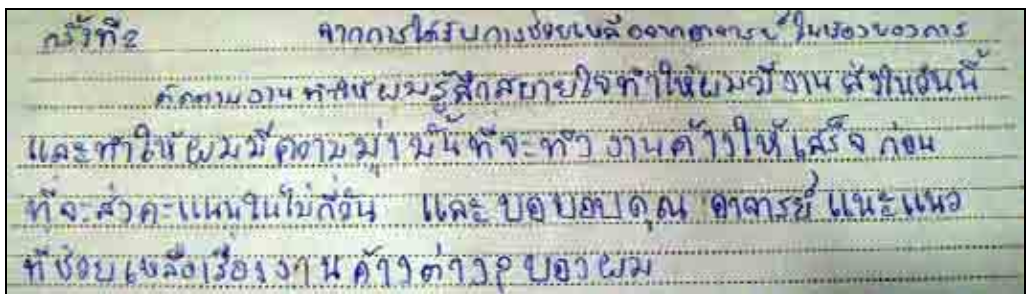 ครั้งที่2 จากการได้รับการช่วยเหลือจากอาจารย์ ในเรื่องของการ
ติดตามงาน ทำให้ผมรู้สึกสบายใจทำให้ผมมีงานส่งในวันนี้
และทำให้ผมมีความมุ่งมั่นที่จะทำงานค้างให้เสร็จ ก่อน
ที่จะส่งคะแนนในไม่กี่วัน และ ขอขอบคุณ อาจารย์ แนะแนว
ที่ช่วยเหลือเรื่องงานค้างต่างๆ ของผม